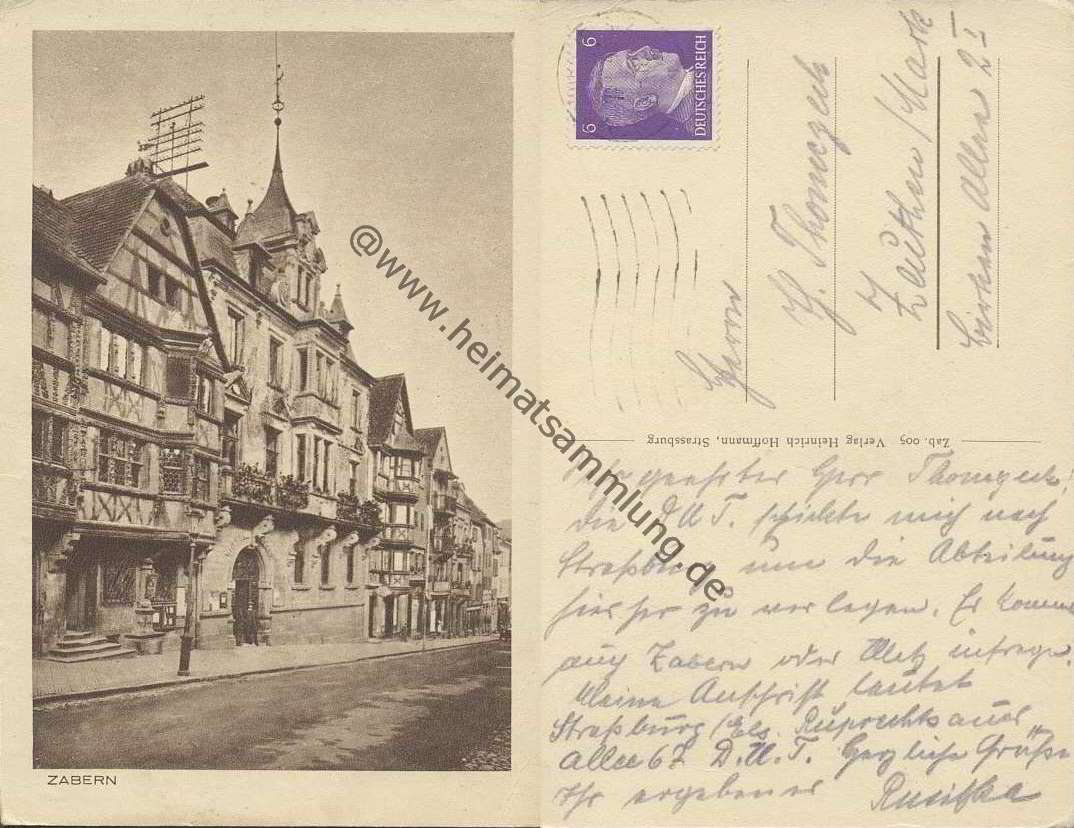 ZABERN
@www.heimatsammlung.de
6
6
DEUTSCHES REICH
Herrn
H. Thomczek
Zeuthen/Mark
Allee 2 I
Zab. 005 Verlag Heinrich Hoffmann, Strassburg
geehrter Herr Thomczek!
Die D.U.T. schickte mich nach
Straßburg um die Abteilung
hierher zu verlegen. Es kommt
auch Zabern oder Metz infrage.
Meine Anschrift lautet
Straßburg/Els. Ruprechtsauer
Allee 67 D.U.T. Herzliche Grüße
Ihr ergebener